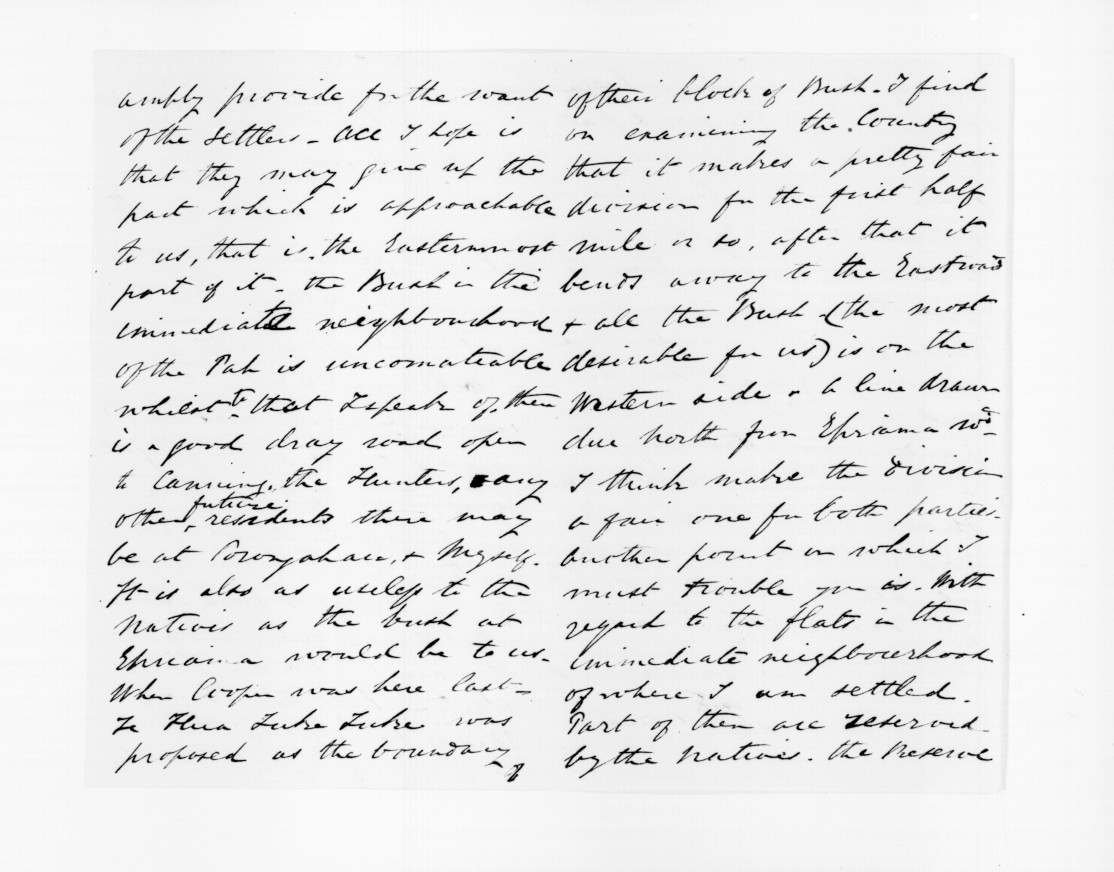 amply provide for the want
of the settlers - All I hope is
that they may give up the
part which is approachable
to us, that is, the Easternmost
part of it - the Bush in the
immediate neighbourhood
of the Pah is uncomateable
whilst to that I speak of, there
is a good dray road open
to Canning, the Hunters, any
other future residents there may
be at & Myself.
It is also as useless to the
Natives as the bush at
Epriama would be to us -
When Cooper was here last -
Te Hua was
proposed as the boundary
of
of their block of Bush - I find
on examining the Country
that it makes a pretty fair
division for the first half
mile or so, after that it
bends away to the Eastward
& all the Bush (the most
desirable for us) is on the
Western side - A line drawn
due North from Epriama wd
I think make the division
a fair one for both parties.
Another point on which I
must trouble you is. With
regard to the flats in the
immediate neighbourhood
of where I am settled.
Part of them are reserved
by the Natives. the Reserve